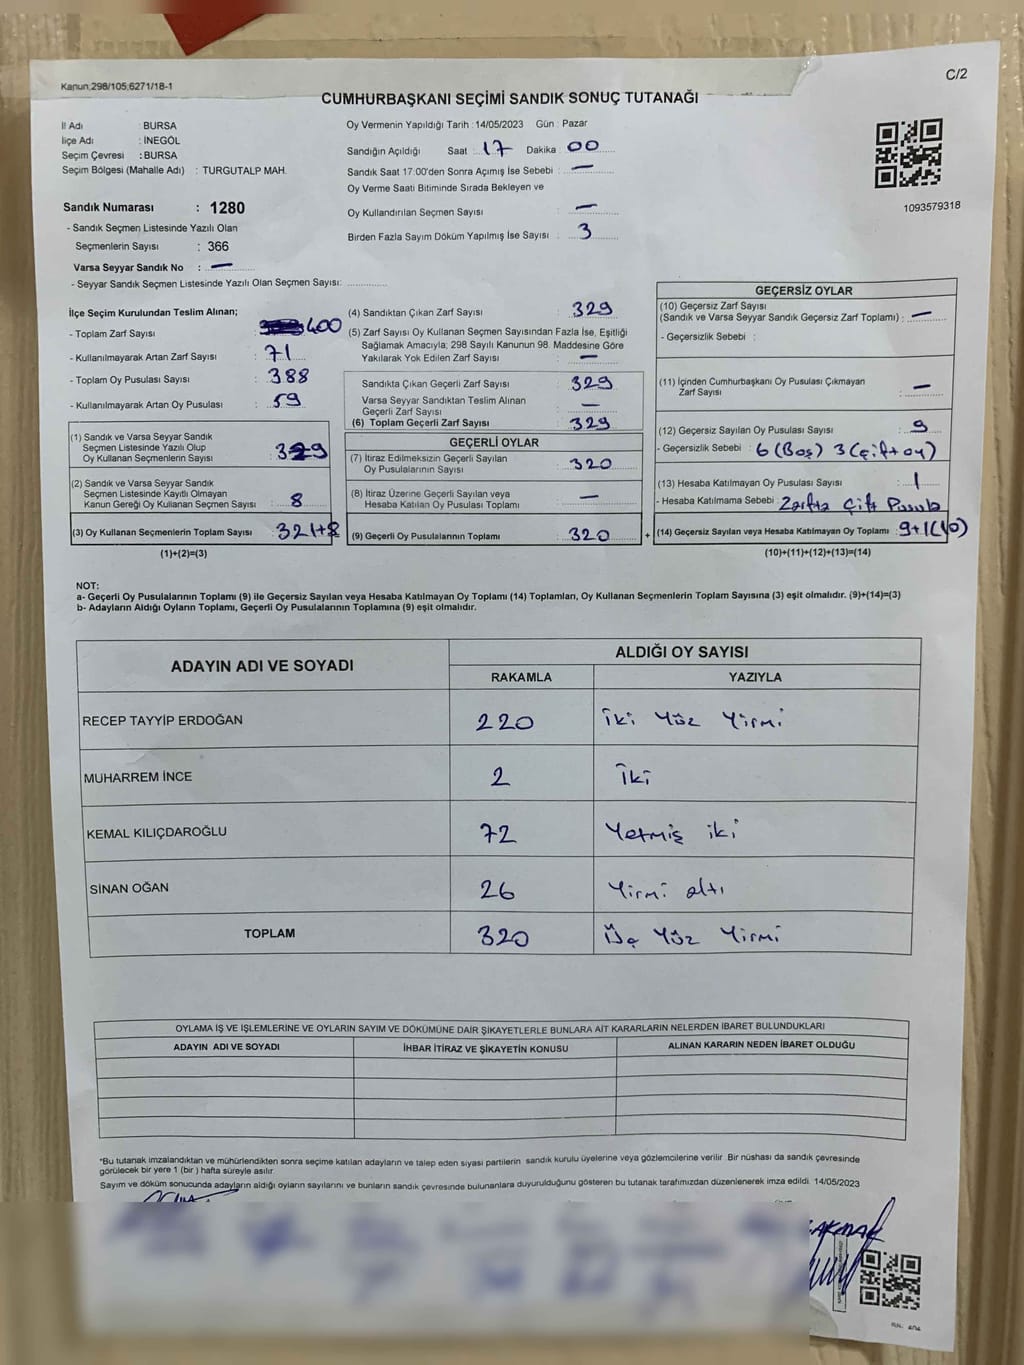 Kanun;298/105;6271/18-1
C/2
CUMHURBAŞKANI SEÇİMİ SANDIK SONUÇ TUTANAĞI
İl Adı : BURSA
İlçe Adı : İNEGÖL
Seçim Çevresi : BURSA
Seçim Bölgesi (Mahalle Adı) : TURGUTALP MAH.
Oy Vermenin Yapıldığı Tarih : 14/05/2023 Gün : Pazar
Sandığın Açıldığı Saat : 17 Dakika : 00
Sandık Saat 17:00'den Sonra Açımış İse Sebebi : —
Oy Verme Saati Bitiminde Sırada Bekleyen ve
Oy Kullandırılan Seçmen Sayısı : —
Birden Fazla Sayım Döküm Yapılmış İse Sayısı : 3
1093579318
Sandık Numarası : 1280
- Sandık Seçmen Listesinde Yazılı Olan
Seçmenlerin Sayısı : 366
Varsa Seyyar Sandık No : —
- Seyyar Sandık Seçmen Listesinde Yazılı Olan Seçmen Sayısı:
İlçe Seçim Kurulundan Teslim Alınan;
- Toplam Zarf Sayısı : 400
- Kullanılmayarak Artan Zarf Sayısı : 71
- Toplam Oy Pusulası Sayısı : 388
- Kullanılmayarak Artan Oy Pusulası : 59
(1) Sandık ve Varsa Seyyar Sandık
Seçmen Listesinde Yazılı Olup
Oy Kullanan Seçmenlerin Sayısı : 329
(2) Sandık ve Varsa Seyyar Sandık
Seçmen Listesinde Kayıtlı Olmayan
Kanun Gereği Oy Kullanan Seçmen Sayısı : 8
(3) Oy Kullanan Seçmenlerin Toplam Sayısı : 321+8
(1)+(2)=(3)
(4) Sandıktan Çıkan Zarf Sayısı : 329
(5) Zarf Sayısı Oy Kullanan Seçmen Sayısından Fazla İse, Eşitliği
Sağlamak Amacıyla; 298 Sayılı Kanunun 98. Maddesine Göre
Yakılarak Yok Edilen Zarf Sayısı : —
Sandıkta Çıkan Geçerli Zarf Sayısı : 329
Varsa Seyyar Sandıktan Teslim Alınan
Geçerli Zarf Sayısı : —
(6) Toplam Geçerli Zarf Sayısı : 329
GEÇERLİ OYLAR
(7) İtiraz Edilmeksizin Geçerli Sayılan
Oy Pusulalarının Sayısı : 320
(8) İtiraz Üzerine Geçerli Sayılan veya
Hesaba Katılan Oy Pusulası Toplamı : —
(9) Geçerli Oy Pusulalarının Toplamı : 320
+
GEÇERSİZ OYLAR
(10) Geçersiz Zarf Sayısı
(Sandık ve Varsa Seyyar Sandık Geçersiz Zarf Toplamı) : —
- Geçersizlik Sebebi :
(11) İçinden Cumhurbaşkanı Oy Pusulası Çıkmayan
Zarf Sayısı : —
(12) Geçersiz Sayılan Oy Pusulası Sayısı : 9
- Geçersizlik Sebebi : 6 (Boş) 3 (Çift oy)
(13) Hesaba Katılmayan Oy Pusulası Sayısı : 1
- Hesaba Katılmama Sebebi : Zarfta Çift Pusula
(14) Geçersiz Sayılan veya Hesaba Katılmayan Oy Toplamı : 9+1(10)
(10)+(11)+(12)+(13)=(14)
NOT:
a- Geçerli Oy Pusulalarının Toplamı (9) ile Geçersiz Sayılan veya Hesaba Katılmayan Oy Toplamı (14) Toplamları, Oy Kullanan Seçmenlerin Toplam Sayısına (3) eşit olmalıdır. (9)+(14)=(3)
b- Adayların Aldığı Oyların Toplamı, Geçerli Oy Pusulalarının Toplamına (9) eşit olmalıdır.
ADAYIN ADI VE SOYADI
ALDIĞI OY SAYISI
RAKAMLA YAZIYLA
RECEP TAYYİP ERDOĞAN 220 İki Yüz Yirmi
MUHARREM İNCE 2 İki
KEMAL KILIÇDAROĞLU 72 Yetmiş iki
SİNAN OĞAN 26 Yirmi altı
TOPLAM 320 Üç Yüz Yirmi
OYLAMA İŞ VE İŞLEMLERİNE VE OYLARIN SAYIM VE DÖKÜMÜNE DAİR ŞİKAYETLERLE BUNLARA AİT KARARLARIN NELERDEN İBARET BULUNDUKLARI
ADAYIN ADI VE SOYADI İHBAR İTİRAZ VE ŞİKAYETİN KONUSU ALINAN KARARIN NEDEN İBARET OLDUĞU
*Bu tutanak imzalandıktan ve mühürlendikten sonra seçime katılan adayların ve talep eden siyasi partilerin sandık kurulu üyelerine veya gözlemcilerine verilir. Bir nüshası da sandık çevresinde
görülecek bir yere 1 (bir) hafta süreyle asılır.
Sayım ve döküm sonucunda adayların aldığı oyların sayılarını ve bunların sandık çevresinde bulunanlara duyurulduğunu gösteren bu tutanak tarafımızdan düzenlenerek imza edildi. 14/05/2023